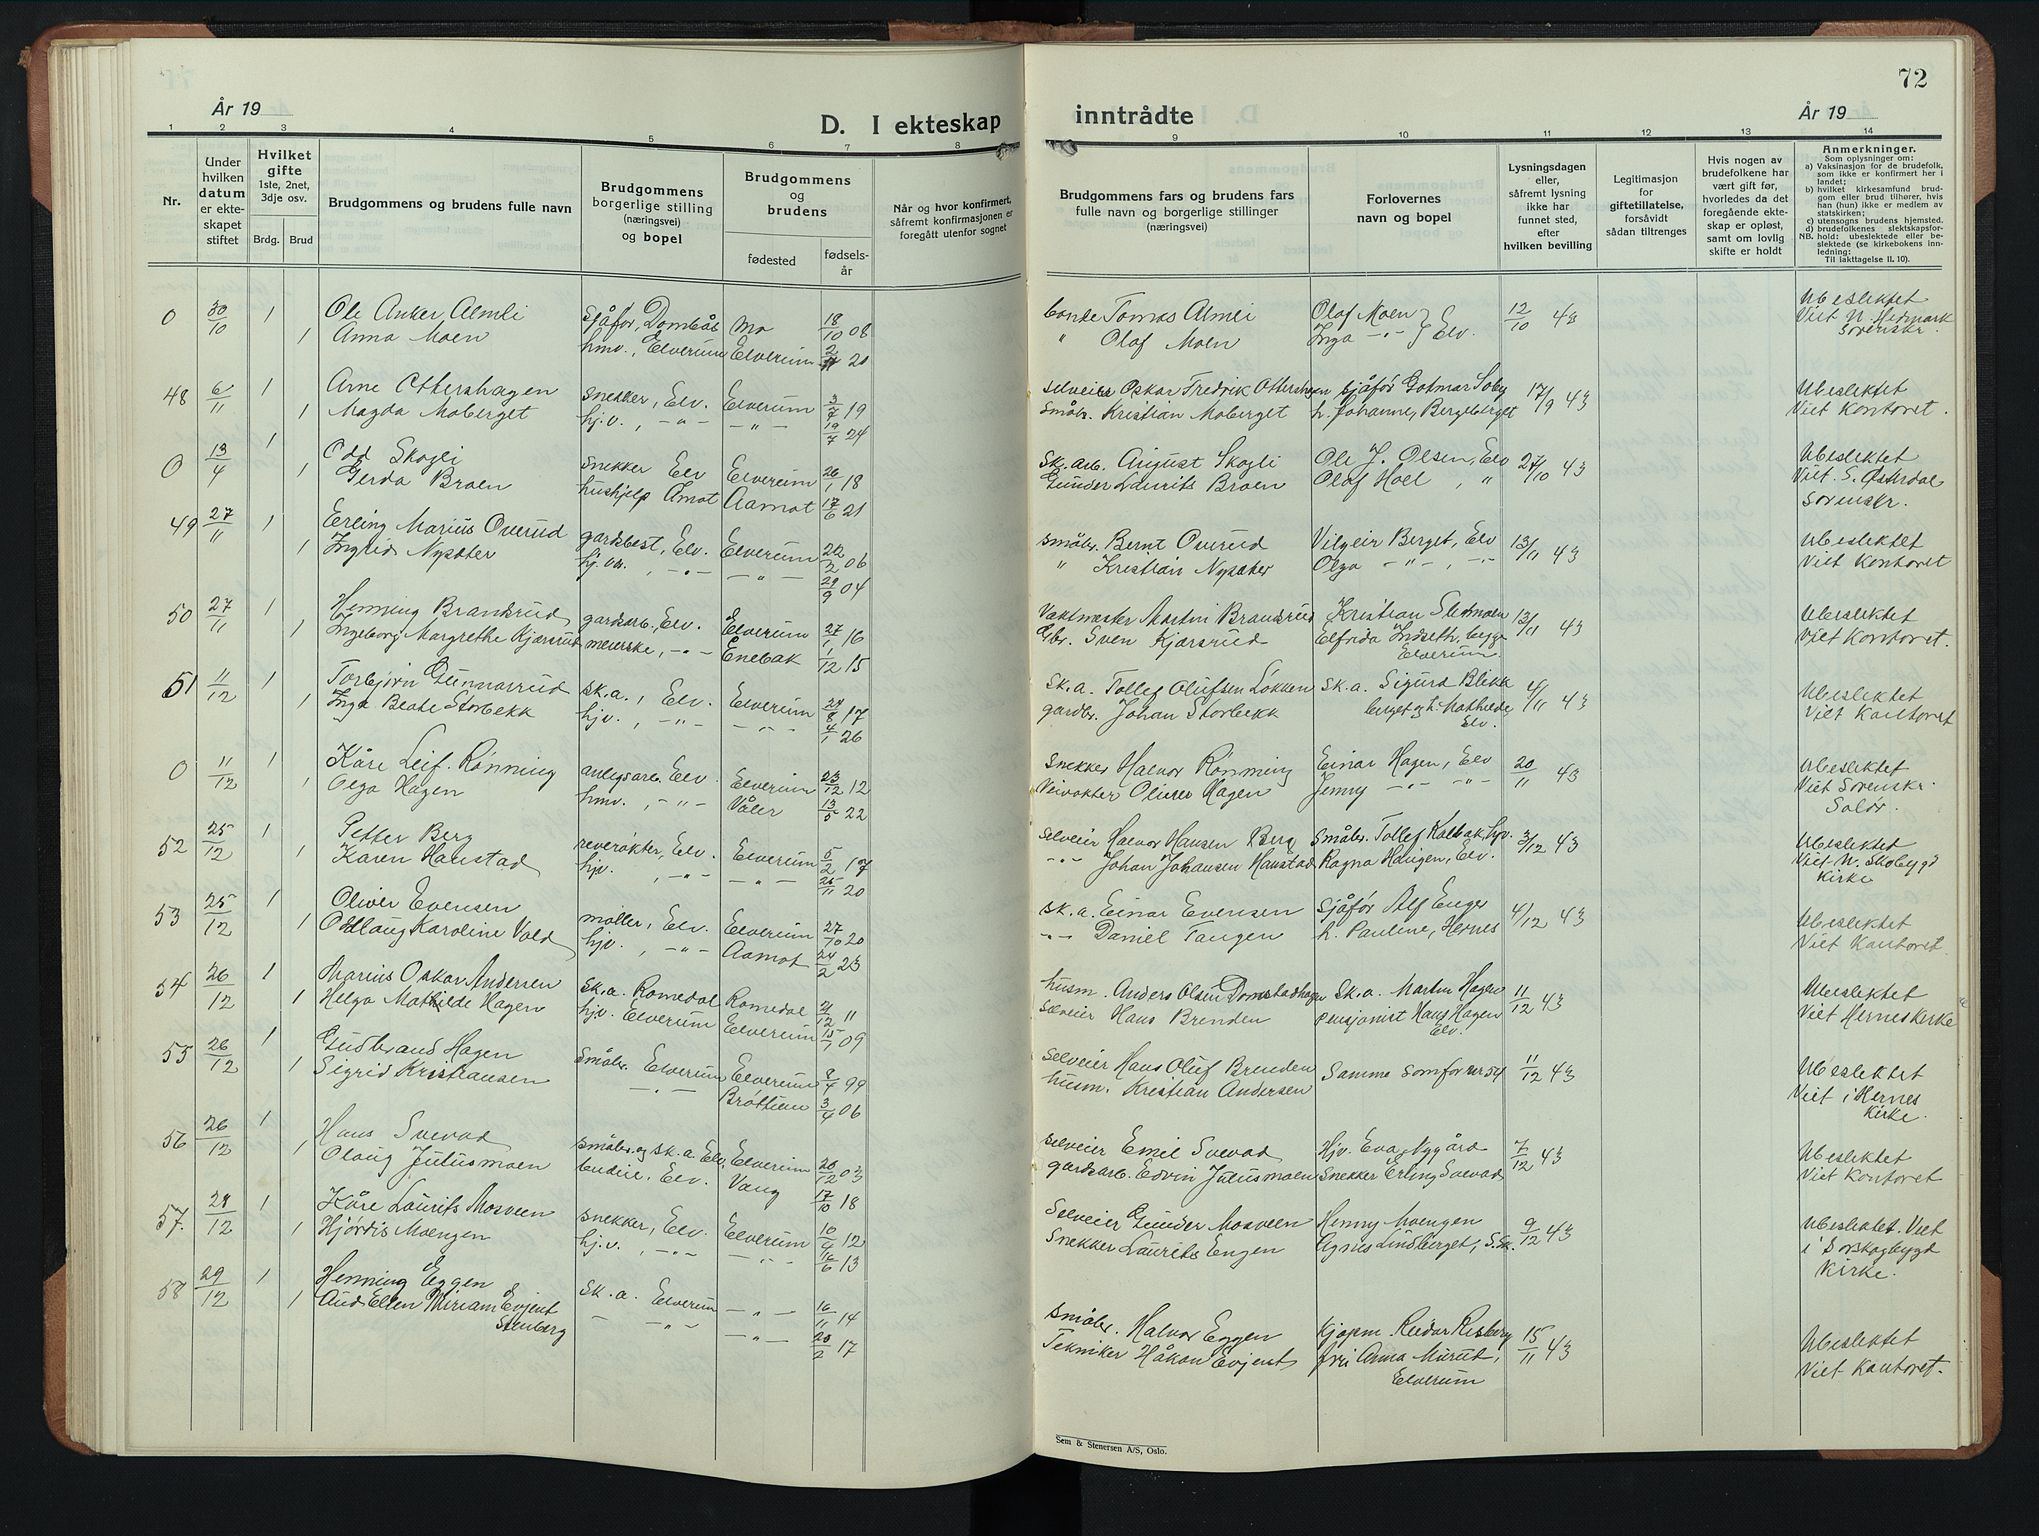 72
År 19
D. I ekteskap inntrådte
År 19
1 2 3 4 5 6 7 8 9 10 11 12 13 14
Nr.
Under hvilken datum er ekteskapet stiftet
Hvilket gifte 1ste, 2net, 3dje osv.
Brdg. Brud
Brudgommens og brudens fulle navn
Brudgommens borgerlige stilling (næringsvei) og bopel
Brudgommens og brudens
fødested
fødselsår
Når og hvor konfirmert, såfremt konfirmasjonen er foregått utenfor sognet
Brudgommens fars og brudens fars fulle navn og borgerlige stillinger (næringsvei)
Forlovernes navn og bopel
Lysningsdagen eller, såfremt lysning ikke har funnet sted, efter hvilken bevilling
Legitimasjon for giftetillatelse, forsåvidt sådan tiltrenges
Hvis nogen av brudefolkene har vært gift før, hvorledes da det foregående ekteskap er opløst, samt om lovlig skifte er holdt
Anmerkninger.
Som oplysninger om:
a) Vaksinasjon for de brudefolk, som ikke er konfirmert her i landet;
b) hvilket kirkesamfund brudgom eller brud tilhører, hvis han (hun) ikke er medlem av statskirken;
c) utensogns brudens hjemsted.
d) brudefolkenes slektskapsforhold: ubeslektede eller beslektede (se kirkebokens innledning:
NB.
Til iakttagelse II. 10).
0 30/10 1 Ole Anker Almli sjåfør, Dombås Mo 18/10 08 bonde Tomas Almli Olaf Moen 12/10 43 Ubeslektet
1 Anna Moen hmv., Elverum Elverum 21 " Olaf Moen Inga -"- Elv. Viet N. Hedmark
Sorenskr.
48 6/11 1 Arne Ottershagen snekker, Elv. Elverum 3/7 19 selveier Oskar Fredrik Ottershagen sjåfør Gotmar Soby 17/9 43 Ubeslektet
1 Magda Moberget hj.v., -"- -"- 19/7 24 Småbr. Kristian Moberget h. Johanne, Bergeberget Viet Kontoret.
0 13/4 1 Odd Skogli snekker Elv Elverum 26/1 18 Sk.arb. August Skogli Ole J. Olsen, Elv 27/10 43 Ubeslektet
1 Gerda Braen hushjelp Åmot Aamot 17/6 21 Gunder Laurits Braen Olaf Hoel, " Viet. S. Østerdal
Sorenskr.
49 27/11 1 Erling Marius Overud gardsbest, Elv. Elverum 22/2 06 småbr. Bernt Overud Vilgeir Berget, Elv 13/11 43 Ubeslektet
1 Ingrid Nysæter hj.vn., -"- -"- 29/9 04 " Kristian Nysæter Olga -"-, -"- Viet Kontoret
50 27/11 1 Henning Brandsrud gardsarb., Elv. Elverum 27/1 16 Vaktmester Martin Brandsrud Kristian Stedmoen 13/11 43 Ubeslektet
1 Ingeborg Margrethe Kjærsrud meierske, -"- Enebak 1/12 15 Gbr. Sven Kjærsrud Elfrida Indseth, bygge Viet Kontoret.
Elverum.
51 11/12 1 Torbjørn Gunnarrud sk.a., Elv. Elverum 24/8 17 Sk.a. Tollef Olufsen Løkken sk.a. Sigurd Blikk 4/11 43 Ubeslektet
1 Inga Beate Storbekk hjv., -"- -"- 4/1 26 gardbr. Johan Storbekk berget og h. Mathilde, Viet Kontoret
Elv.
0 11/12 1 Kåre Leif Rønning anlegsarb. Elv. Elverum 23/12 12 Snekker Halvor Rønning Einar Hagen, Elv 20/11 43 Ubeslektet
1 Olga Hagen hmv., -"- Våler 13/5 22 Veivokter Oliver Hagen Jenny -"- -"- Viet Sorenskr.
Solør.
52 25/12 1 Petter Berg reverøkter, Elv. Elverum 5/2 17 selveier Halvor Hansen Berg småbr. Tollef Kolbak, hjv. 3/12 43 Ubeslektet
1 Karen Haustad hjv., -"- -"- 25/11 20 -"- Johan Johansen Haustad Ragna Haugen, Elv. Viet N. Skobygd
Kirke
53 25/12 1 Oliver Evensen møller, Elv. Elverum 27/10 20 sk.a. Einar Evensen Sjåfør Alf Enger 4/12 43 Ubeslektet
1 Oddlaug Karoline Vold hjv., -"- Aamot 24/2 23 -"- Daniel Tangen h. Pauline, Hernes Viet Kontoret.
54 26/12 1 Marius Oskar Andersen Sk.a. Romedal Romedal 21/12 11 husm. Anders Olsen Domstadhagen Sk.a. Martin Hagen 11/12 43 Ubeslektet
1 Helga Mathilde Hagen hjv. Elverum Elverum 15/1 09 Selveier Hans Brenden pensjonist Hans Hagen Viet Hernes kirke
Elv.
55 26/12 1 Gudbrand Hagen Småbr. Elverum Elverum 8/4 99 Selveier Hans Oluf Brenden Samme som for nr 54 11/12 43 Ubeslektet
1 Sigrid Kristiansen -"- Brøttum 3/4 06 husm. Kristian Andersen Viet i Hernes
Kirke.
56 26/12 1 Hans Svevad småbr. og sk.a. Elv. Elverum 20/12 03 selveier Emil Svevad Hjv. Eva Nygård 7/12 43 Ubeslektet
1 Olaug Julusmoen budeie, Elv. Vang 17/10 18 gardsarb. Edvin Julusmoen Snekker Erling Svevad Viet Kontoret
57. 28/12 1 Kåre Laurits Mosveen snekker, Elv. Elverum 10/4 12 Selveier Gunder Mosveen Henny Moengen 9/12 43 Ubeslektet. Viet
1 Hjørdis Moengen hj.v., -"- -"- 16/6 13 Snekker Laurits Engen Agnes Lindberget, S.Sk. i Sørskogbygd
Kirke.
58 29/12 1 Henning Eggen Sk.a. Elverum -"- 16/11 14 småbr. Halvor Eggen Kjøpm. Reidar Risberg 15/11 43 Ubeslektet
1 Aud Ellen Miriam Evjent - -"- -"- 20/2 17 Tekniker Håkon Evjent frk Anna Murud, Viet Kontoret.
Stenberg Elverum
Sem & Stenersen A/S, Oslo.